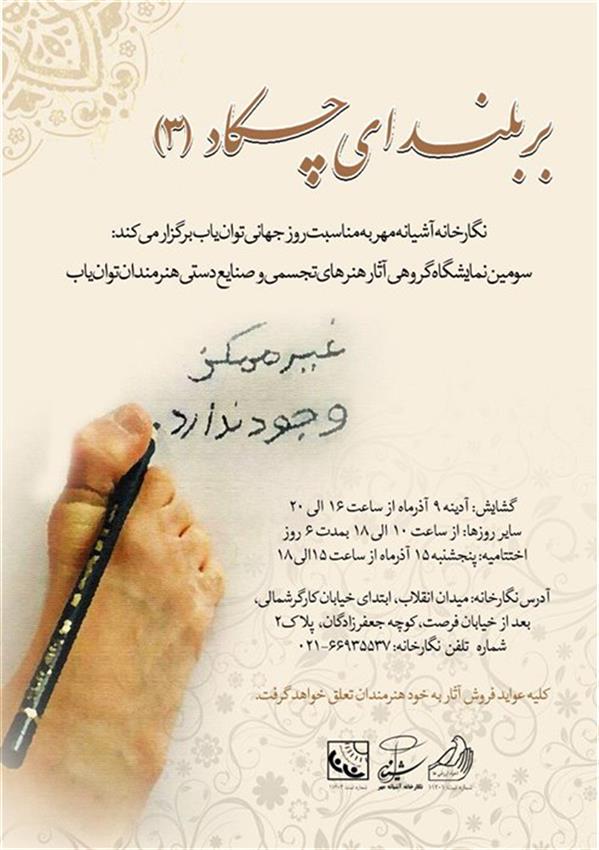 بر بلندای چکاد (۳)
نگارخانه آشیانه مهر به مناسبت روز جهانی توان‌یاب برگزار می‌کند:
سومین نمایشگاه گروهی آثار هنرهای تجسمی و صنایع دستی هنرمندان توان‌یاب
غیر ممکن
وجود ندارد.
گشایش: آدینه ۹ آذرماه از ساعت ۱۶ الی ۲۰
سایر روزها: از ساعت ۱۰ الی ۱۸ بمدت ۶ روز
اختتامیه: پنجشنبه ۱۵ آذرماه از ساعت ۱۵ الی ۱۸
آدرس نگارخانه: میدان انقلاب، ابتدای خیابان کارگر شمالی،
بعد از خیابان فرصت، کوچه جعفرزادگان، پلاک ۲
شماره تلفن نگارخانه: ۶۶۹۳۵۵۳۷-۰۲۱
کلیه عواید فروش آثار به خود هنرمندان تعلق خواهد گرفت.
نگارخانه آشیانه مهر